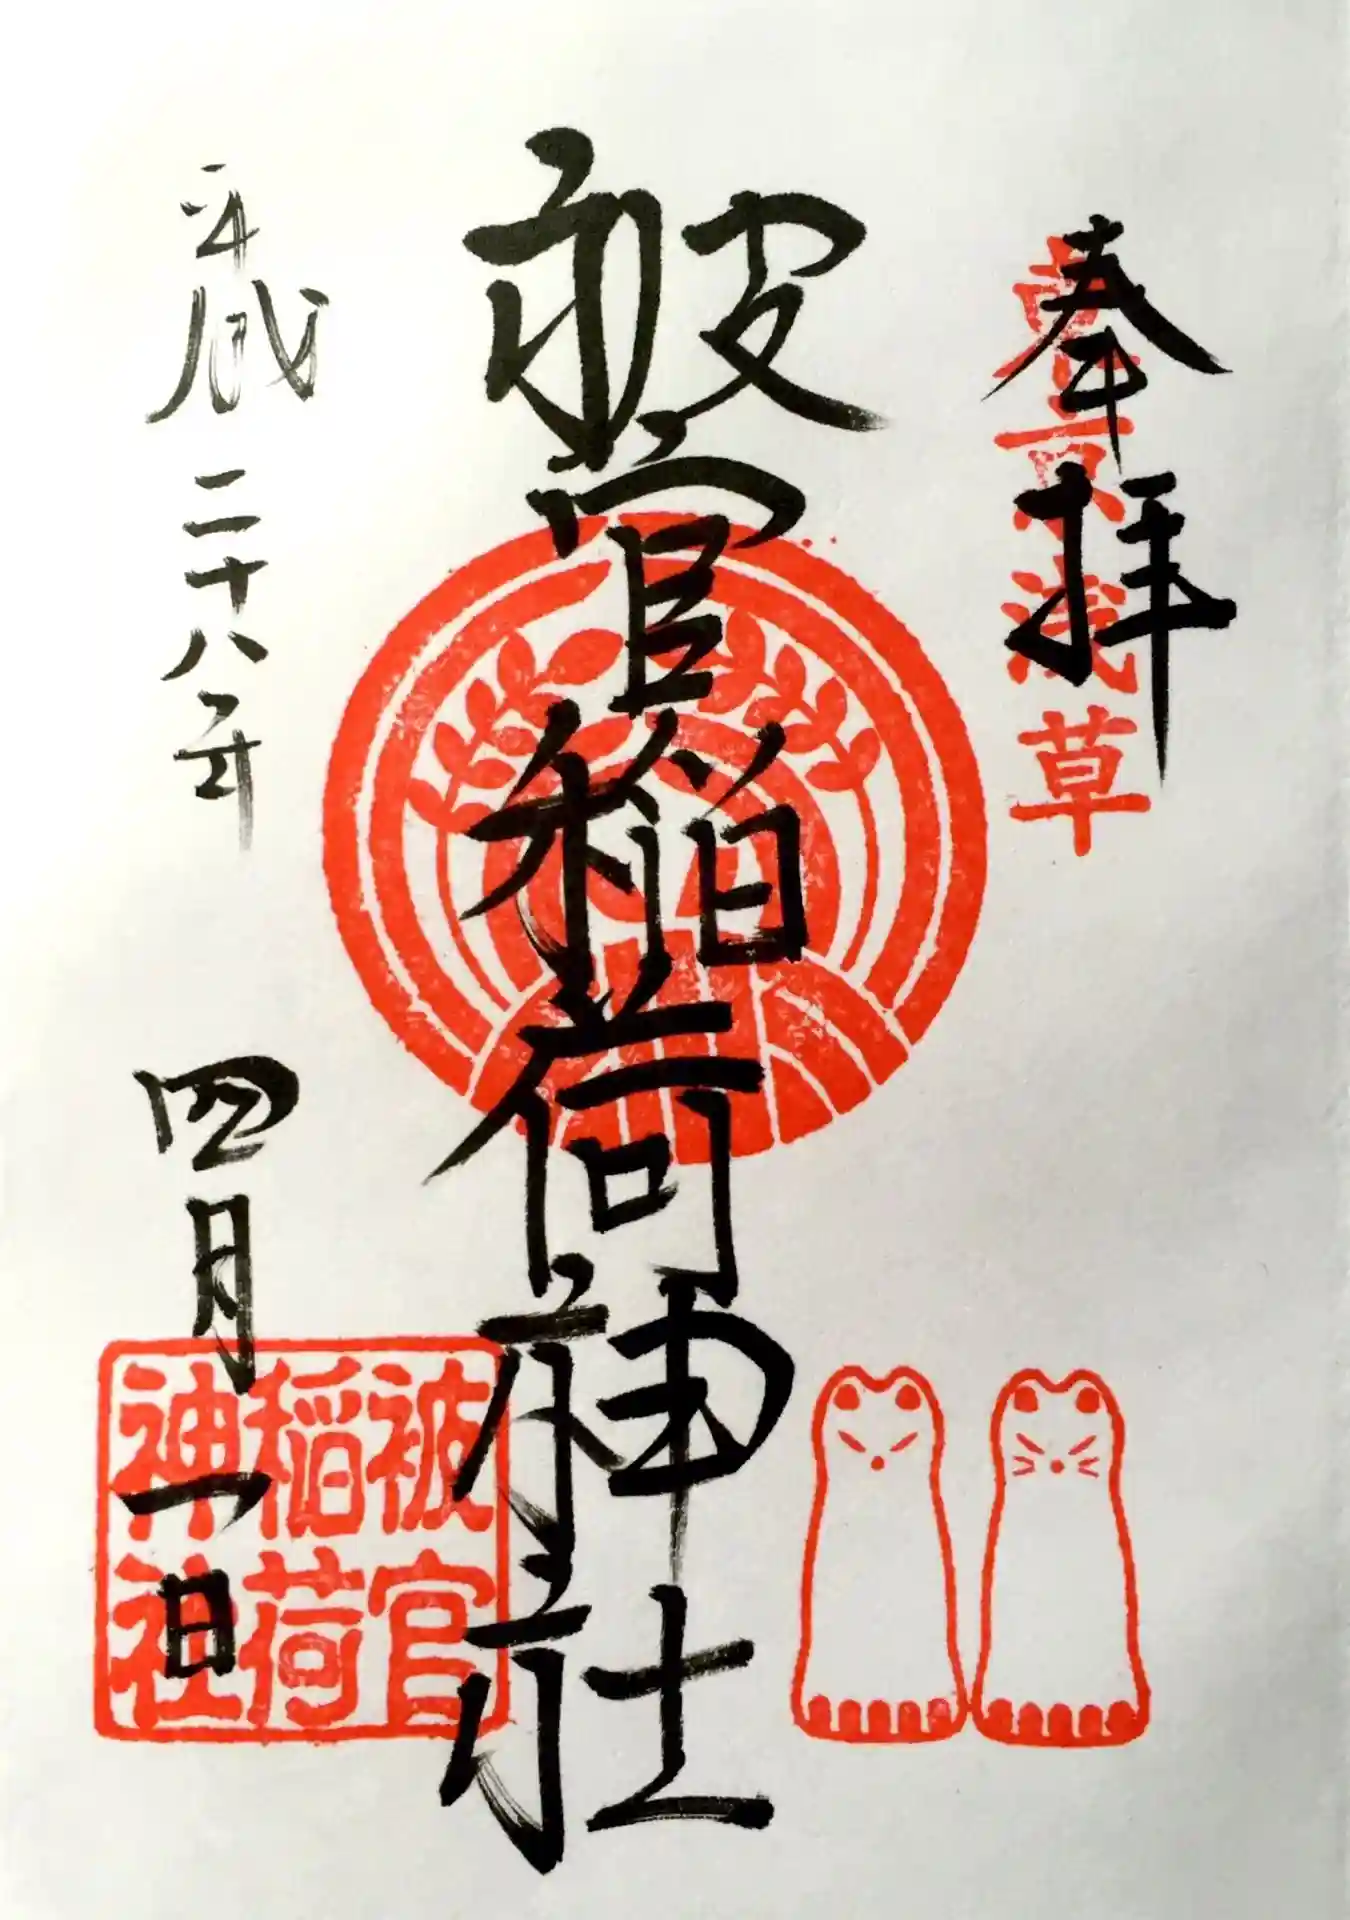 奉拝
東京浅草
被官稲荷神社
平成二十八年四月一日
被官
稲荷
神社